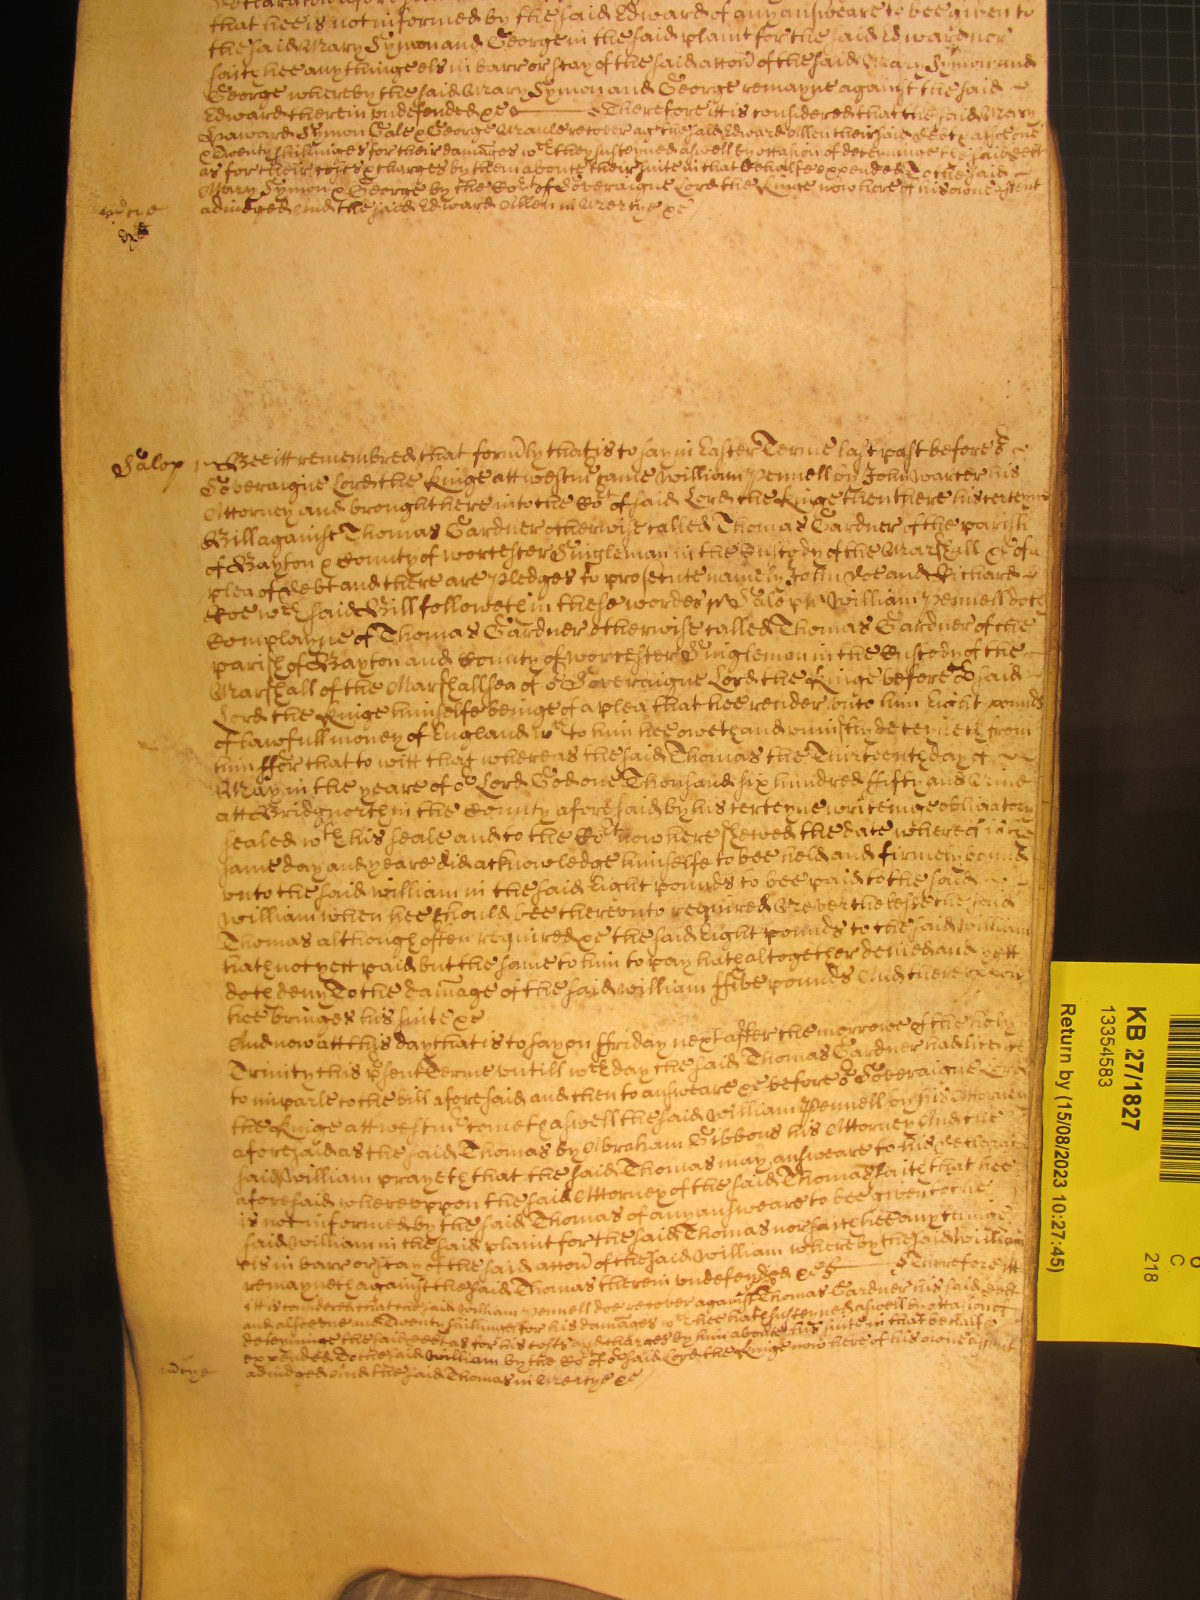 that hee is not informed by the said Edward of any answeare to bee given to
the said Mary Symon and George in the said plaint for the said Edward nor
saith hee any thinge els in barr or stay of the said attorn of the said Mary Symon and
George whereby the said Mary Symon and George remayne against the said
Edward therein undefended &c Therefore itt is considered that the said Mary
Hayward Symon Cale & George Maule recover agt the said Edward Allen their said debt & alsoe one
& Twenty shillinges for their damages wch they susteyned aswell by occasion of deteyninge the said debt
as for their costs & charges by them aboute their suite in that behalfe expended To the said
Mary Symon & George by the Cort of or Soveraigne Lord the Kinge now here of his owne assent
adiudged And the said Edward Allen in Mercye &c
mercye
Salop
Bee itt remembred that formly that is to say in Easter Terme last past before or
Soveraigne Lord the Kinge att westmr came William Pennell by John Warter his
Attorney and brought here into the Cort of said Lord the Kinge then there his certeyne
Bill against Thomas Gardner otherwise called Thomas Gardner of the parish
of Bayton & County of worcester Singleman in the Custody of the Marshall &c of a
plea of debt and there are Pledges to prosecute namely John Doe and Richard
Roe wch said Bill followeth in these wordes ss Salop ss William Pennell doth
Complayne of Thomas Gardner otherwise called Thomas Gardner of the
parish of Bayton and County of worcester Singlemon in the Custody of the
Marshall of the Marshallsea of or Soveraigne Lord the Kinge before or said
Lord the Kinge himselfe beinge of a plea that hee render unto him Eight pounds
of lawfull money of England wch to him hee oweth and uniustly deteyneth from
him ffor that to witt that whereas the said Thomas the Thirteenth day of
May in the yeare of or Lord God one Thousand six hundred ffifty and Nine
att Bridgnorth in the County aforesaid by his certeyne writeinge obligatory
sealed wth his seale and to the Cort now here shewed the date whereof is the
same day and yeare did acknowledge himselfe to bee held and firmely bound
unto the said William in the said Eight pounds to bee paid to the said
William when hee should bee thereunto required Neverthelesse the said
Thomas although often required &c the said Eight pounds to the said William
hath not yett paid but the same to him to pay hath altogether denied and yett
doth deny To the damage of the said William ffive pounds And thereupon
hee bringes his suite &c
And now att this day that is to say on ffriday next after the morrowe of the holy
Trinity this psent Terme untill wch day the said Thomas Gardner had licence
to imparle to the bill aforesaid and then to answeare &c before or Soveraigne Lord
the Kinge att westmr cometh aswell the said William Pennell by his Attorney
aforesaid as the said Thomas by Abraham Gibbons his Attorney And the
said William prayeth that the said Thomas may answeare to his declaracon
aforesaid whereuppon the said Attorney of the said Thomas saith that hee
is not informed by the said Thomas of any answeare to bee given to the
said William in the said plaint for the said Thomas nor saith hee any thinge
els in barr or stay of the said attorn of the said William whereby the said William
remayneth against the said Thomas therein undefended &c Therefore itt
itt is considered that the said William Pennell doe recover against Thomas Gardner his said debt
and alsoe one and Twenty shillings for his damages wch hee hath susteyned aswell by occasion of
deteyninge the said debt as for his costs and charges by him aboute his suite in that behalfe
expended To the said William by the Cort of or said Lord the Kinge now here of his owne assent
adiudged And the said Thomas in Mercye &c
mcye
KB 27/1827
13354583
Return by (15/08/2023 10:27:45)
C
218